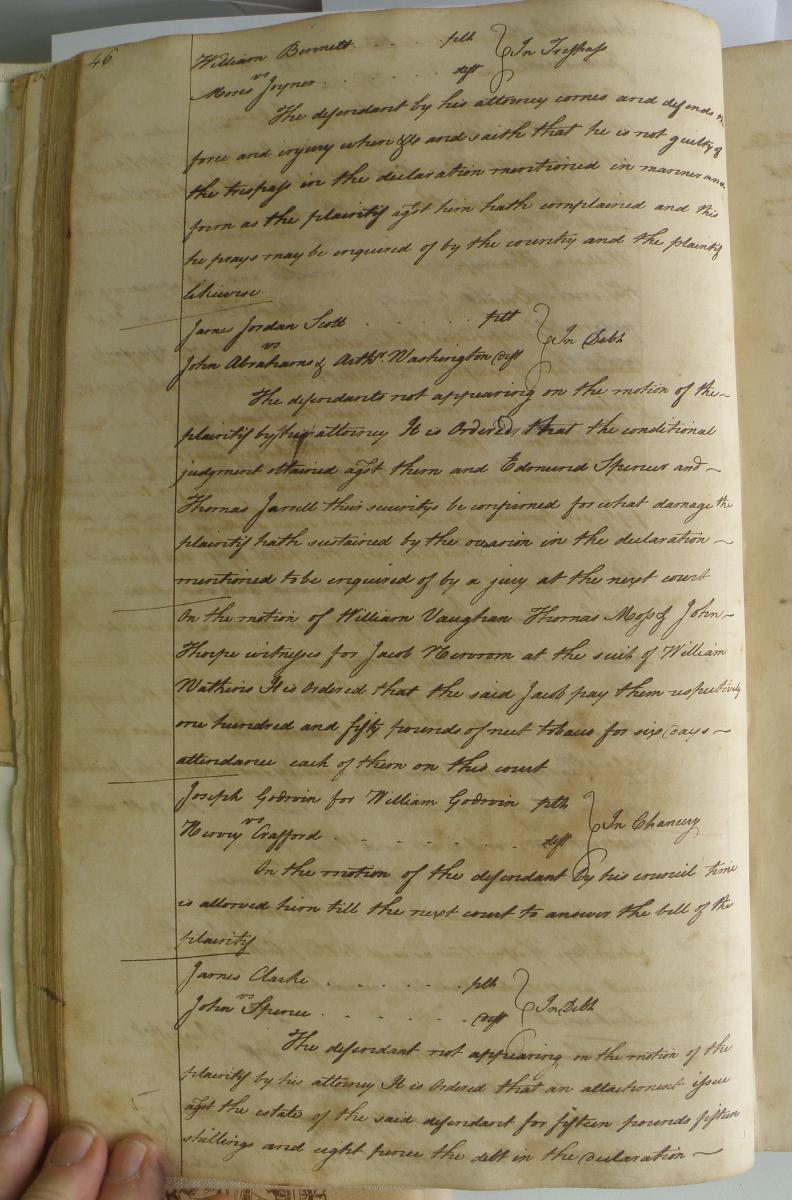 46
William Bennett . . . . pltf } In Trespass
vs
Moses Joyner . . . . . . deft
The defendant by his attorney comes and defends the
force and injury when &c and saith that he is not guilty of
the trespass in the declaration mentioned in manner and
form as the plaintif agst him hath complained and this
he prays may be enquired of by the country and the plaintif
likewise
James Jordan Scott . . . . . pltf } In Debt
vs
John Abrahams & Arthr Washington deft
The defendants not appearing on the motion of the
plaintif by his attorney It is Ordered that the conditional
judgment obtained agst them and Edmund Spencer and
Thomas Jarrell their securitys be confirmed for what damage the
plaintif hath sustained by the occasion in the declaration
mentioned to be enquired of by a jury at the next court
On the motion of William Vaughan Thomas Moss & John
Thorpe witnesses for Jacob Newsom at the suit of William
Watkins It is Ordered that the said Jacob pay them respectively
one hundred and fifty pounds of neet tobacco for six days
attendance each of them on this court
Joseph Godwin for William Godwin pltf } In Chancery
vs
Henry Crafford . . . . . . deft
On the motion of the defendant by his council time
is allowed him till the next court to answer the bill of the
plaintif
James Clarke . . . . . . pltf } In Debt
vs
John Spence . . . . . . deft
The defendant not appearing on the motion of the
plaintif by his attorney It is Ordered that an attachment issue
agst the estate of the said defendant for fifteen pounds fifteen
shillings and eight pence the debt in the declaration